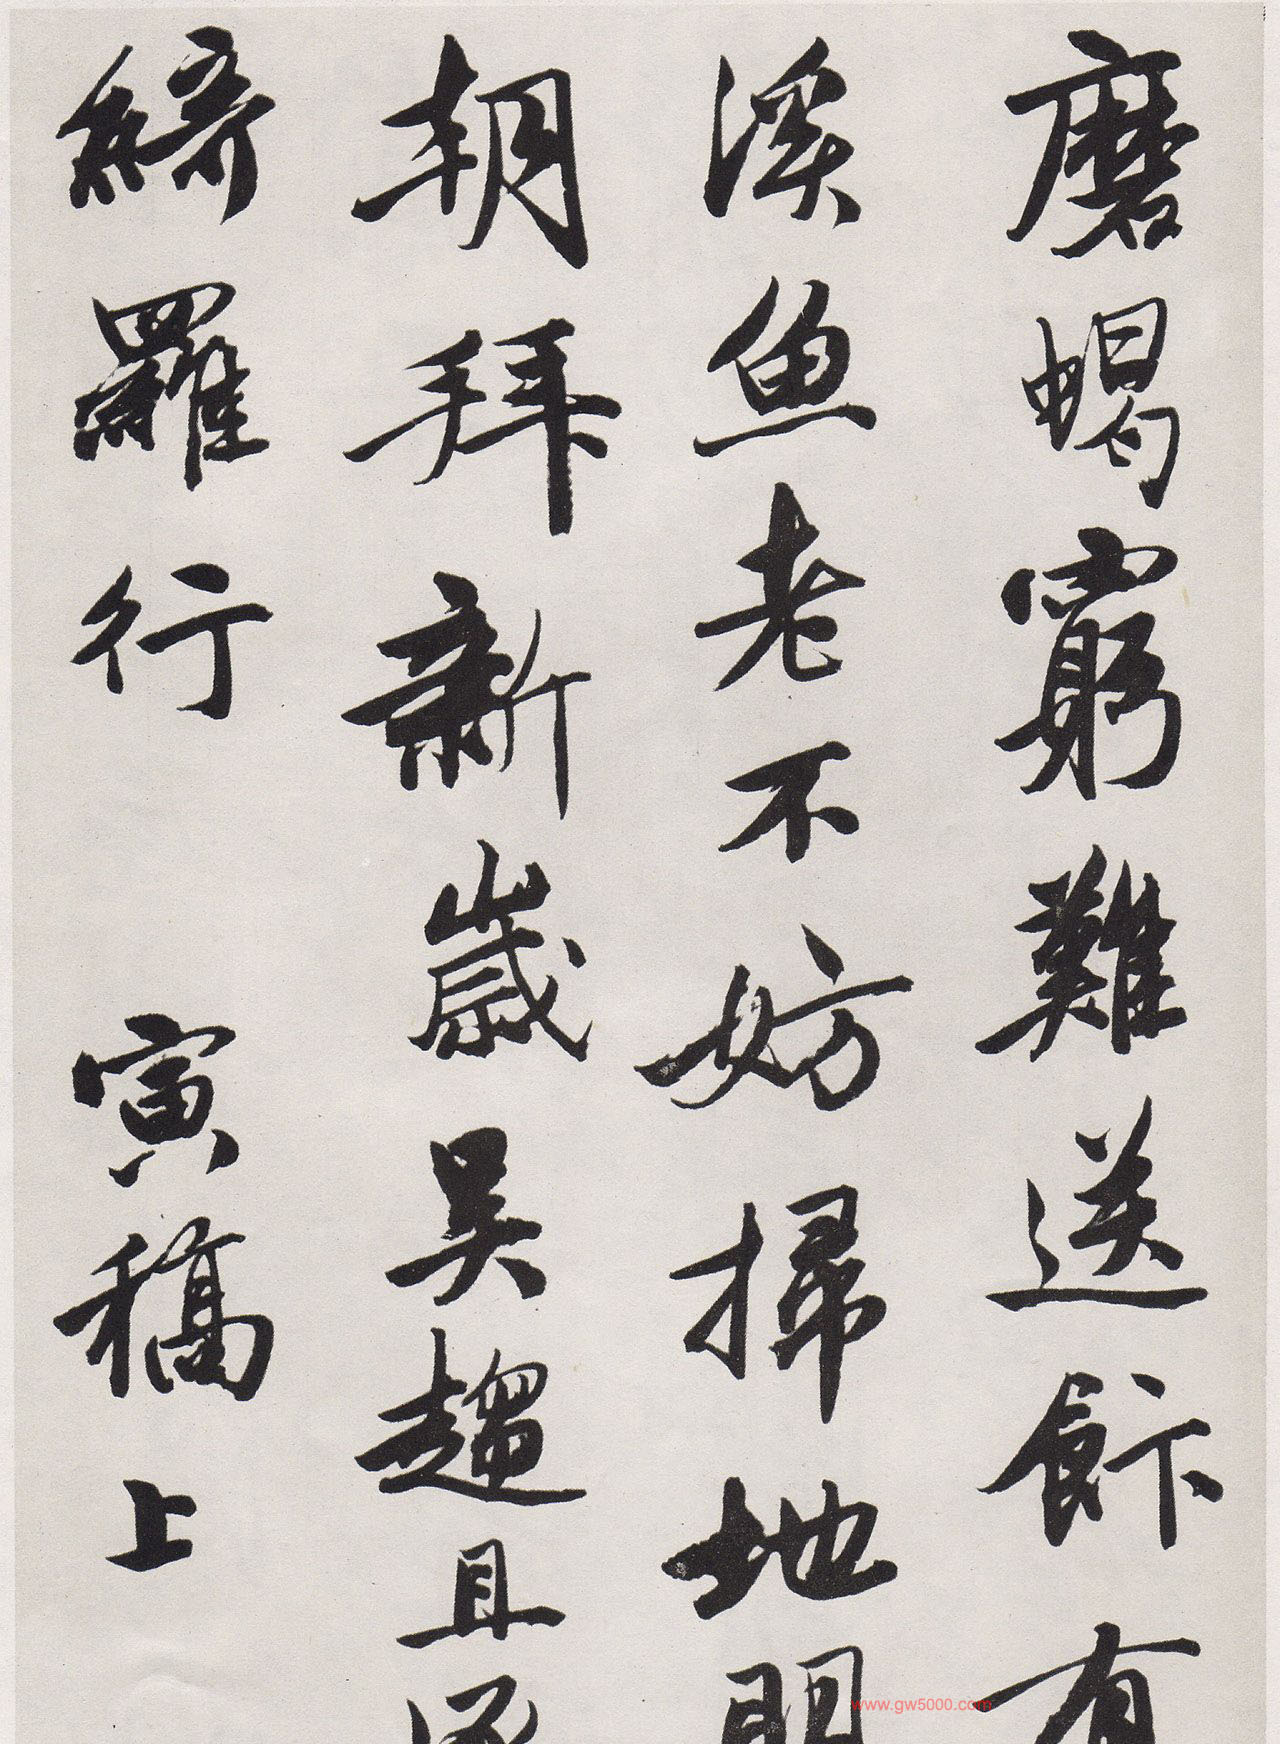 磨蝎窮難送餅有
溪魚老不妨掃地開
朝拜新歲吳趨且逐
綺羅行 寅稿上
www.gw5000.com